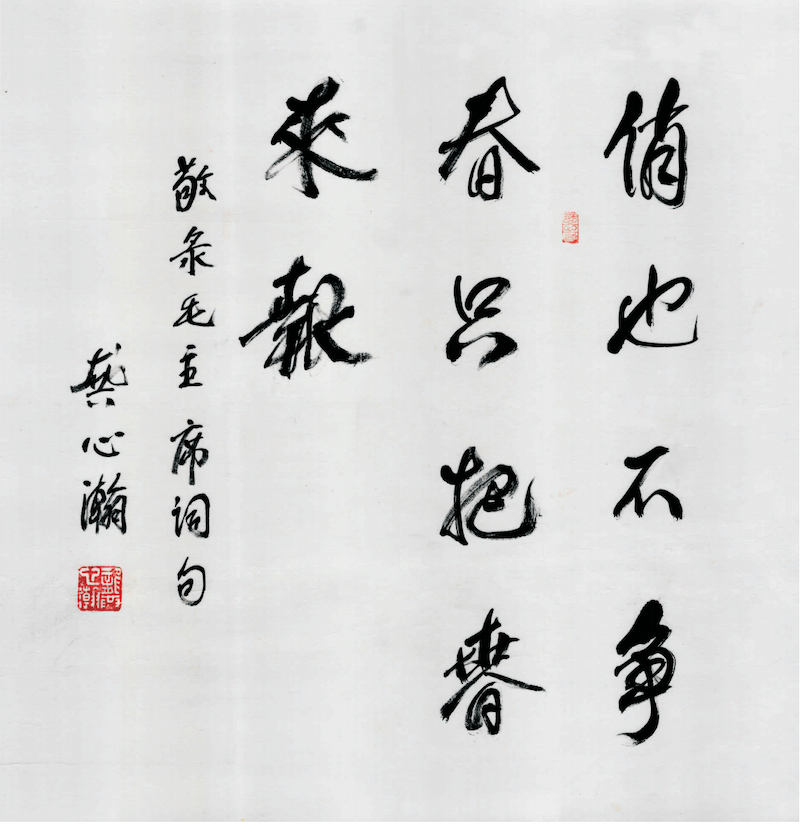 俏也不争
春只把春
來報
敬录毛主席词句
龚心瀚
龚心瀚